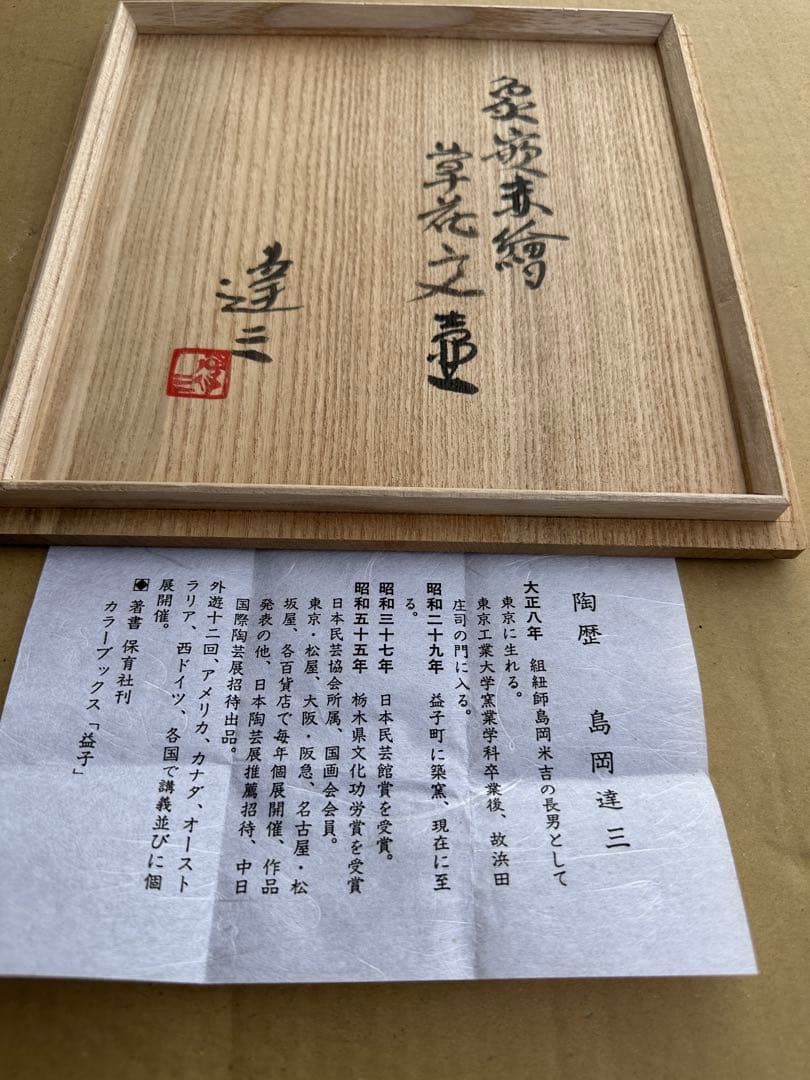 象嵌赤繪
草花文壷
達三
陶歴 島岡達三
大正八年 組紐師島岡米吉の長男として
東京に生れる。
東京工業大学窯業学科卒業後、故浜田
庄司の門に入る。
昭和二十九年 益子町に築窯、現在に至
る。
昭和三十七年 日本民芸館賞を受賞。
昭和五十五年 栃木県文化功労賞を受賞
日本民芸協会所属、国画会会員。
東京・松屋、大阪・阪急、名古屋・松
坂屋、各百貨店で毎年個展開催、作品
発表の他、日本陶芸展推薦招待、中日
国際陶芸展招待出品。
外遊十二回、アメリカ、カナダ、オースト
ラリア、西ドイツ、各国で講義並びに個
展開催。
著書 保育社刊
カラーブックス「益子」